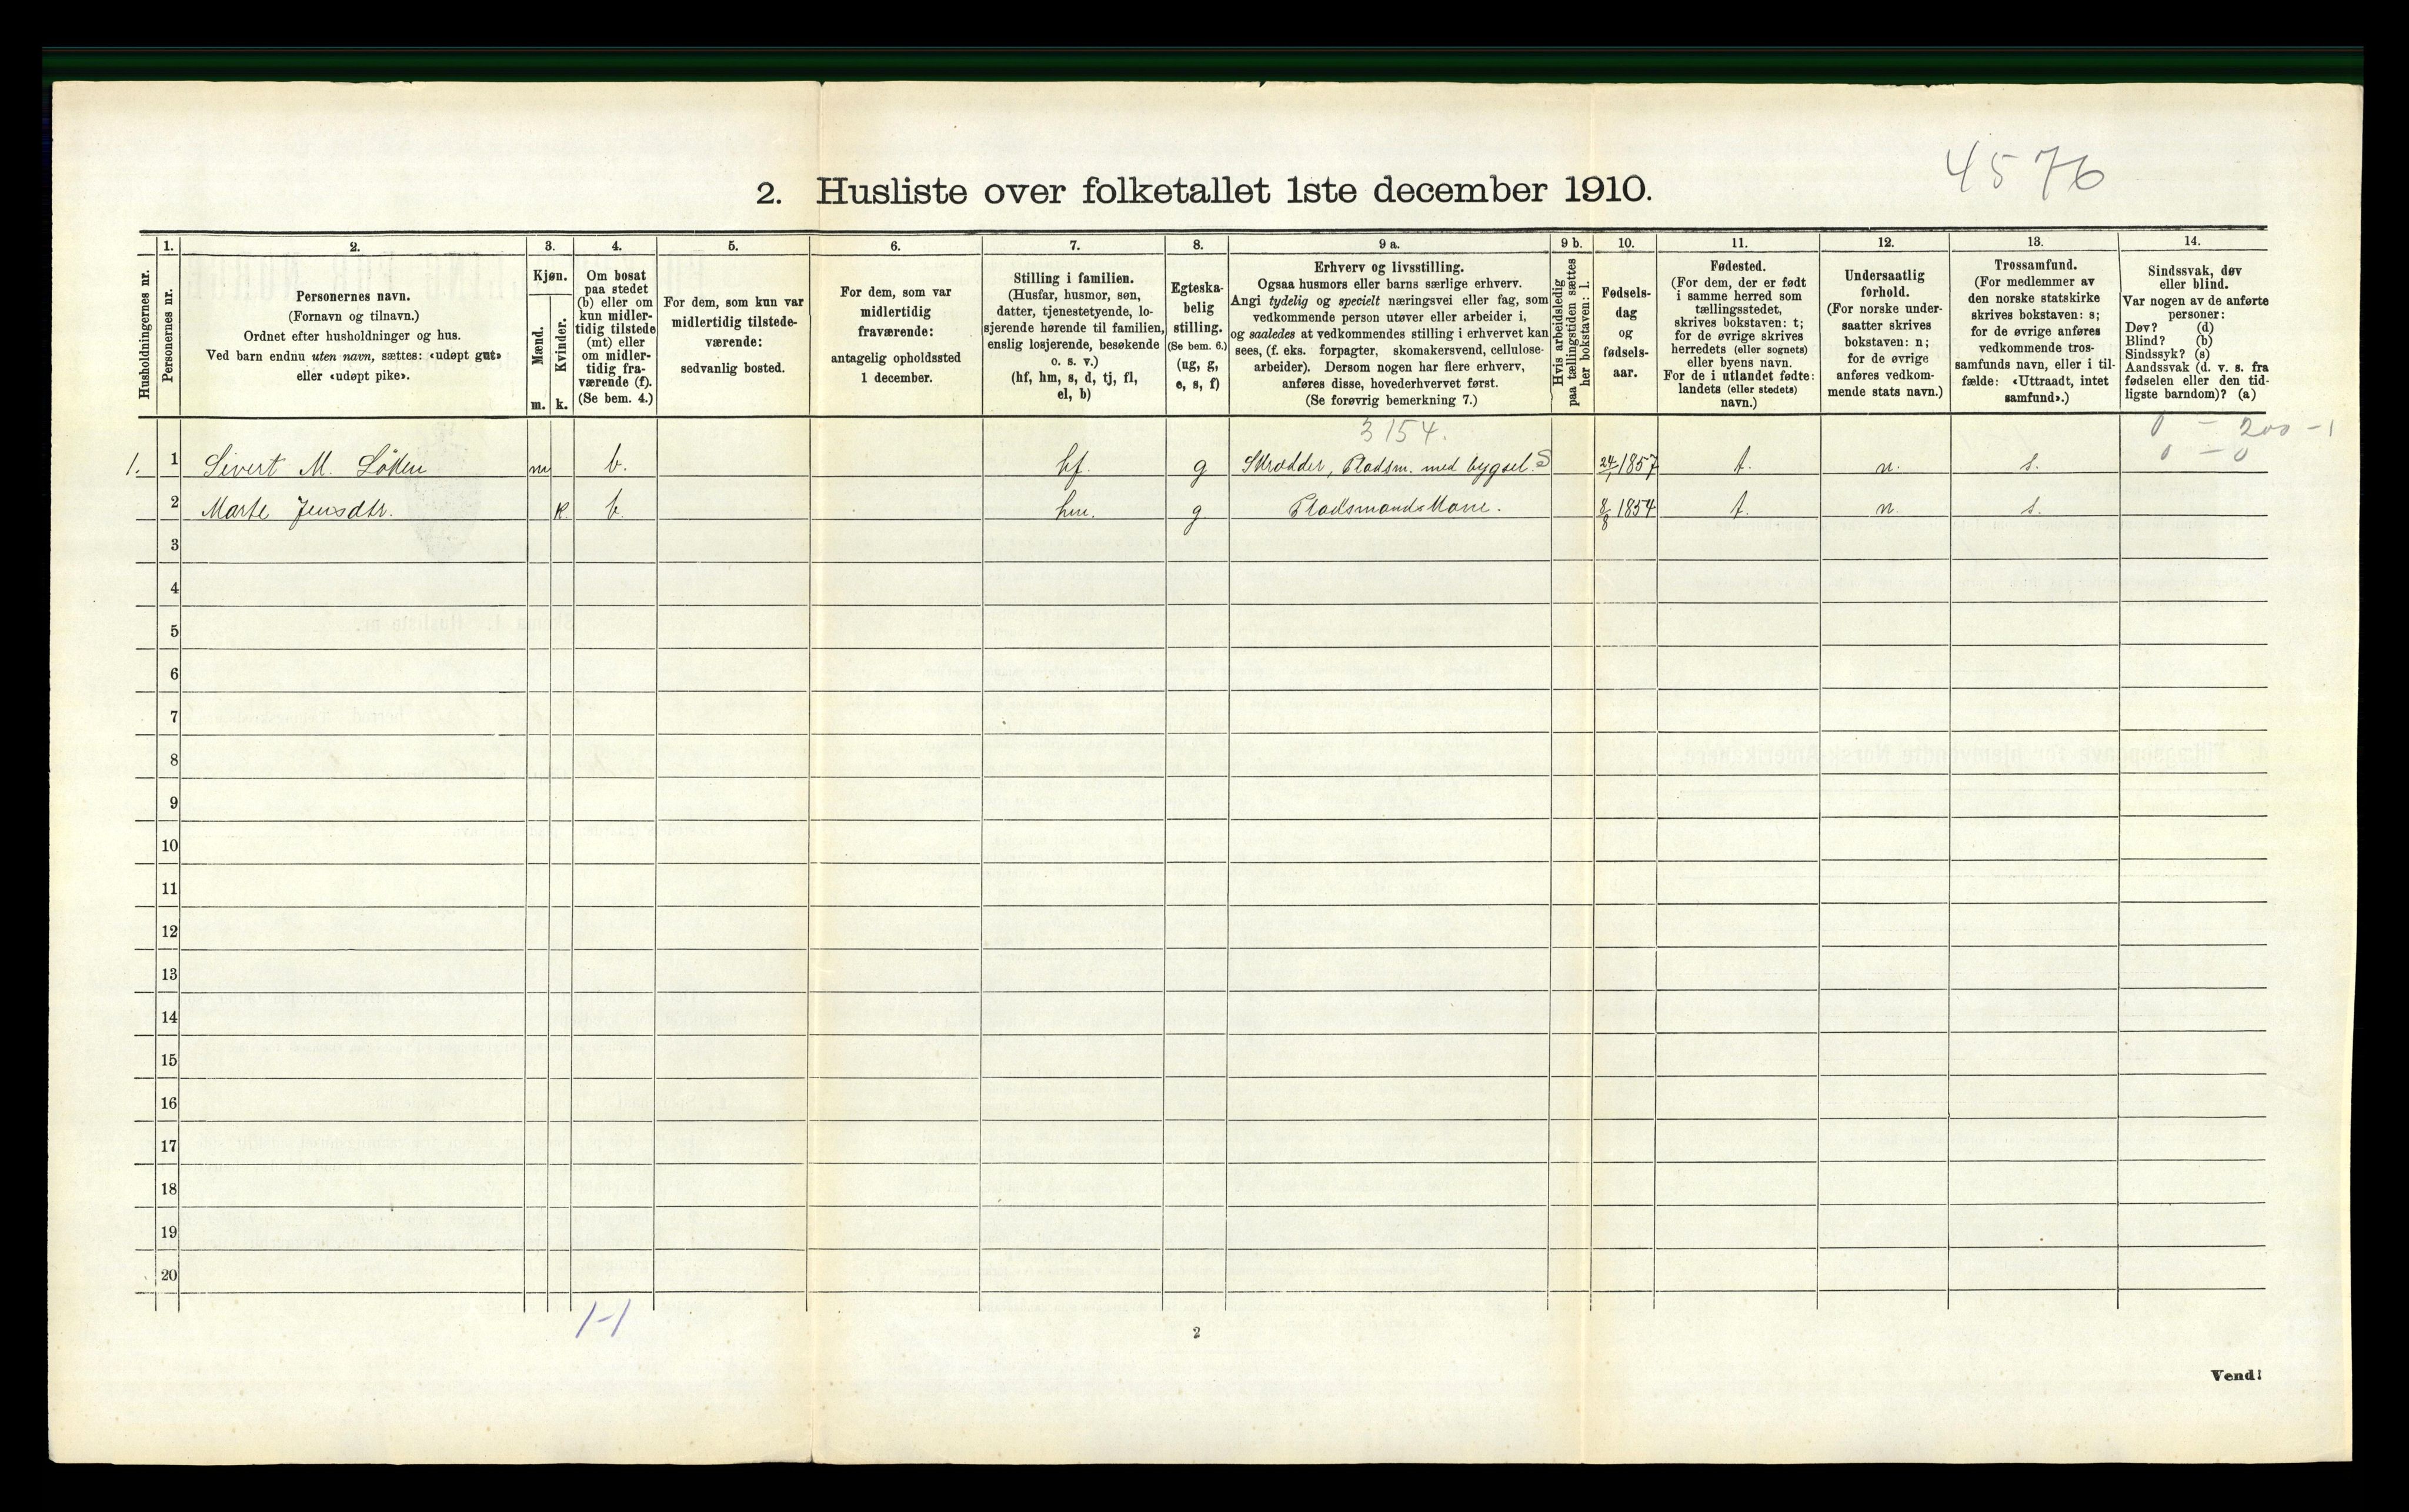 4576
2. Husliste over folketallet 1ste december 1910.
Husholdningernes nr.
1.
Personernes nr.
2.
Personernes navn.
(Fornavn og tilnavn.)
Ordnet efter husholdninger og hus.
Ved barn endnu uten navn, sættes: «udøpt gut»
eller «udøpt pike».
3.
Kjøn.
Mænd.
Kvinder.
m. k.
4.
Om bosat
paa stedet
(b) eller om
kun midler-
tidig tilstede
(mt) eller
om midler-
tidig fra-
værende (f).
(Se bem. 4.)
5.
For dem, som kun var
midlertidig tilstede-
værende:
sedvanlig bosted.
6.
For dem, som var
midlertidig
fraværende:
antagelig opholdssted
1 december.
7.
Stilling i familien.
(Husfar, husmor, søn,
datter, tjenestetyende, lo-
sjerende hørende til familien,
enslig losjerende, besøkende
o. s. v.)
(hf, hm, s, d, tj, fl,
el, b)
8.
Egteska-
belig
stilling.
(Se bem. 6.)
(ug, g,
e, s, f)
9 a.
Erhverv og livsstilling.
Ogsaa husmors eller barns særlige erhverv.
Angi tydelig og specielt næringsvei eller fag, som
vedkommende person utøver eller arbeider i,
og saaledes at vedkommendes stilling i erhvervet kan
sees, (f. eks. forpagter, skomakersvend, cellulose-
arbeider). Dersom nogen har flere erhverv,
anføres disse, hovederhvervet først.
(Se forøvrig bemerkning 7.)
9 b.
Hvis arbeidsledig
paa tællingstiden sættes
her bokstaven: l.
10.
Fødsels-
dag
og
fødsels-
aar.
11.
Fødested.
(For dem, der er født
i samme herred som
tællingsstedet,
skrives bokstaven: t;
for de øvrige skrives
herredets (eller sognets)
eller byens navn.
For de i utlandet fødte:
landets (eller stedets)
navn.)
12.
Undersaatlig
forhold.
(For norske under-
saatter skrives
bokstaven: n;
for de øvrige
anføres vedkom-
mende stats navn.)
13.
Trossamfund.
(For medlemmer av
den norske statskirke
skrives bokstaven: s;
for de øvrige anføres
vedkommende tros-
samfunds navn, eller i til-
fælde: «Uttraadt, intet
samfund».)
14.
Sindssvak, døv
eller blind.
Var nogen av de anførte
personer:
Døv? (d)
Blind? (b)
Sindssyk? (s)
Aandssvak (d. v. s. fra
fødselen eller den tid-
ligste barndom)? (a)
3154. 0 - 200 - 1
0 - 0
1. 1 Sivert M. Löken m b. hf. g Skrædder, Pladsm. med bygsel. S 24/1 1857 t. n. s.
2 Marte Jensdtr. k. b. hm. g Pladsmandskone. 8/8 1854 t. n. s.
3
4
5
6
7
8
9
10
11
12
13
14
15
16
17
18
19
20
1-1
2
Vend!